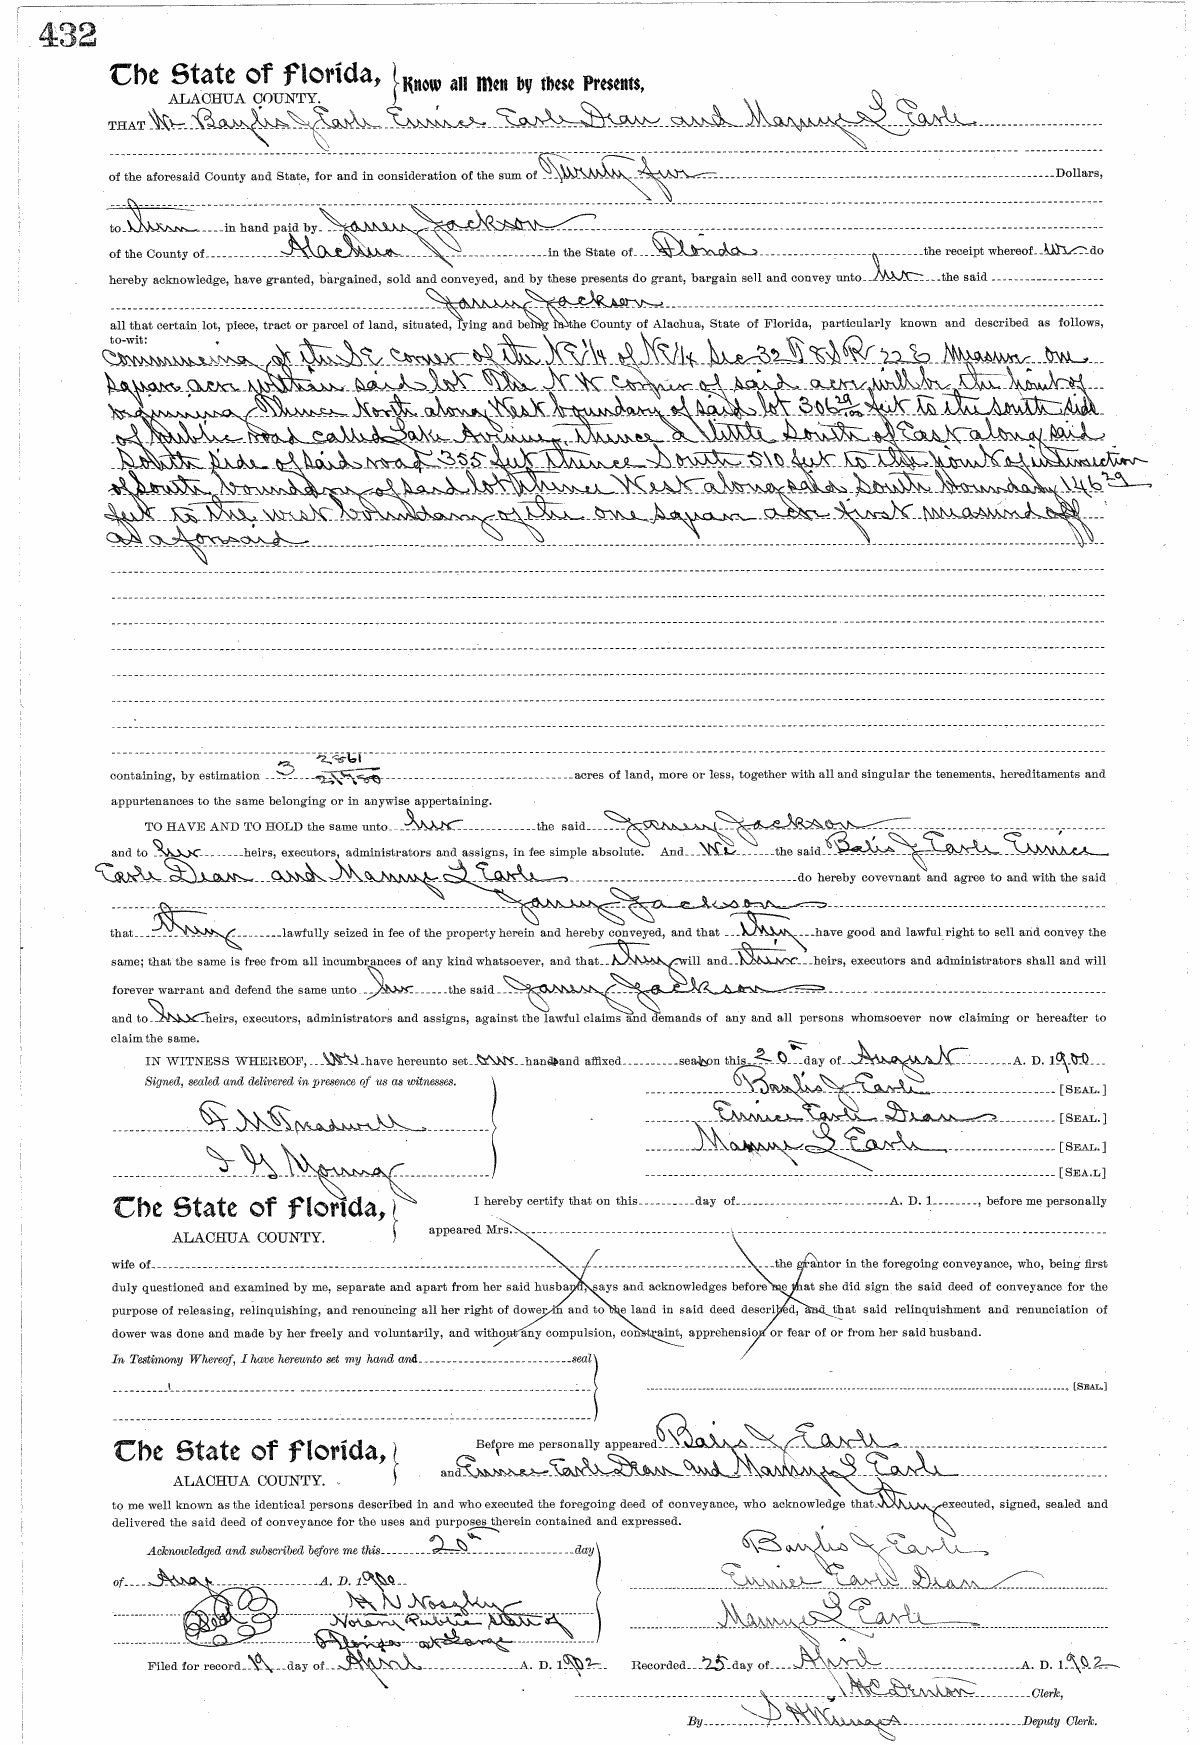 432
The State of Florida, Know all Men by these Presents,
ALACHUA COUNTY.
THAT We Baylis J Earle Eunice Earle Dean and Mamye L Earle
of the aforesaid County and State, for and in consideration of the sum of Twenty five Dollars,
to them in hand paid by Janey Jackson
of the County of Alachua in the State of Florida the receipt whereof we do
hereby acknowledge, have granted, bargained, sold and conveyed, and by these presents do grant, bargain sell and convey unto her the said
Janey Jackson
all that certain lot, piece, tract or parcel of land, situated, lying and being in the County of Alachua, State of Florida, particularly known and described as follows,
to-wit:
Commencing at the SE corner of the NE 1/4 of NE 1/4 Sec 32 T 8 S R 22 E Measure one
square acre within said lot The N W Corner of said acre will be the point of
beginning Thence North along West boundary of said lot 306 29/100 feet to the south side
of public road called Lake Avenue, thence a little South of East along said
South side of said road 355 feet thence South 510 feet to the point of intersection
of south boundary of said lot thence West along said South boundary 146 29
feet to the west boundary of the one square acre first measured off
as aforesaid
containing, by estimation 3 2861 acres of land, more or less, together with all and singular the tenements, hereditaments and
appurtenances to the same belonging or in anywise appertaining.
TO HAVE AND TO HOLD the same unto her the said Janey Jackson
and to her heirs, executors, administrators and assigns, in fee simple absolute. And We the said Balis J Earle Eunice
Earle Dean and Mamye L Earle do hereby covevnant and agree to and with the said
Janey Jackson
that they lawfully seized in fee of the property herein and hereby conveyed, and that they have good and lawful right to sell and convey the
same; that the same is free from all incumbrances of any kind whatsoever, and that they will and their heirs, executors and administrators shall and will
forever warrant and defend the same unto her the said Janey Jackson
and to her heirs, executors, administrators and assigns, against the lawful claims and demands of any and all persons whomsoever now claiming or hereafter to
claim the same.
IN WITNESS WHEREOF, We have hereunto set our hands and affixed seals on this 20th day of August A. D. 1900
Signed, sealed and delivered in presence of us as witnesses. Baylis J Earle [SEAL.]
F M Treadwell Eunice Earle Dean [SEAL.]
Mamye L Earle [SEAL.]
I G Young [SEA.L]
The State of Florida, I hereby certify that on this day of A. D. 1 , before me personally
ALACHUA COUNTY. appeared Mrs.
wife of the grantor in the foregoing conveyance, who, being first
duly questioned and examined by me, separate and apart from her said husband, says and acknowledges before me that she did sign the said deed of conveyance for the
purpose of releasing, relinquishing, and renouncing all her right of dower in and to the land in said deed described, and that said relinquishment and renunciation of
dower was done and made by her freely and voluntarily, and without any compulsion, constraint, apprehension or fear of or from her said husband.
In Testimony Whereof, I have hereunto set my hand and seal
[SEAL.]
The State of Florida, Before me personally appeared Balis J Earle
ALACHUA COUNTY. and Eunice Earle Dean and Mamye L Earle
to me well known as the identical persons described in and who executed the foregoing deed of conveyance, who acknowledge that they executed, signed, sealed and
delivered the said deed of conveyance for the uses and purposes therein contained and expressed.
Acknowledged and subscribed before me this 20th day Baylis J Earle
of Aug A. D. 1900 Eunice Earle Dean
Seal H N
Notary Public State of Mamye L Earle
Florida at Large
Filed for record 19 day of April A. D. 1902 Recorded 25 day of April A. D. 1902
H C Denton Clerk,
By S H Deputy Clerk.